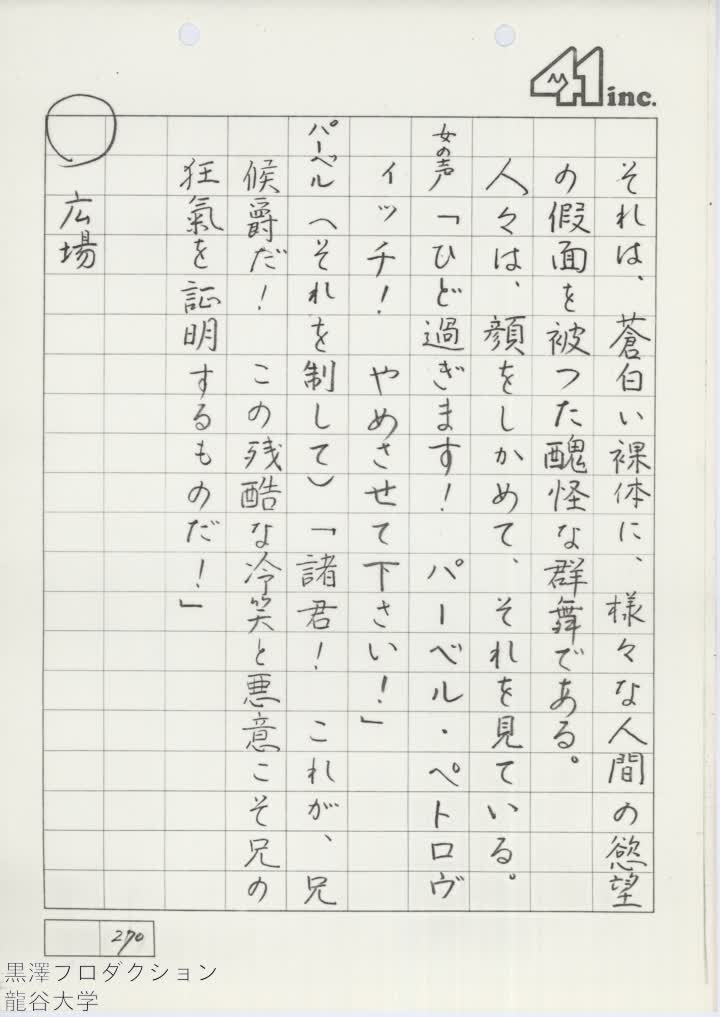 41 inc.
それは、蒼白い裸体に、様々な人間の慾望
の假面を被つた醜怪な群舞である。
人々は、顔をしかめて、それを見ている。
女の声「ひど過ぎます！　パーベル・ペトロヴ
ィッチ！　やめさせて下さい！」
パーベル（それを制して）「諸君！　これが、兄
候爵だ！　この残酷な冷笑と悪意こそ兄の
狂氣を証明するものだ！」
○　広場
270
黒澤プロダクション
龍谷大学